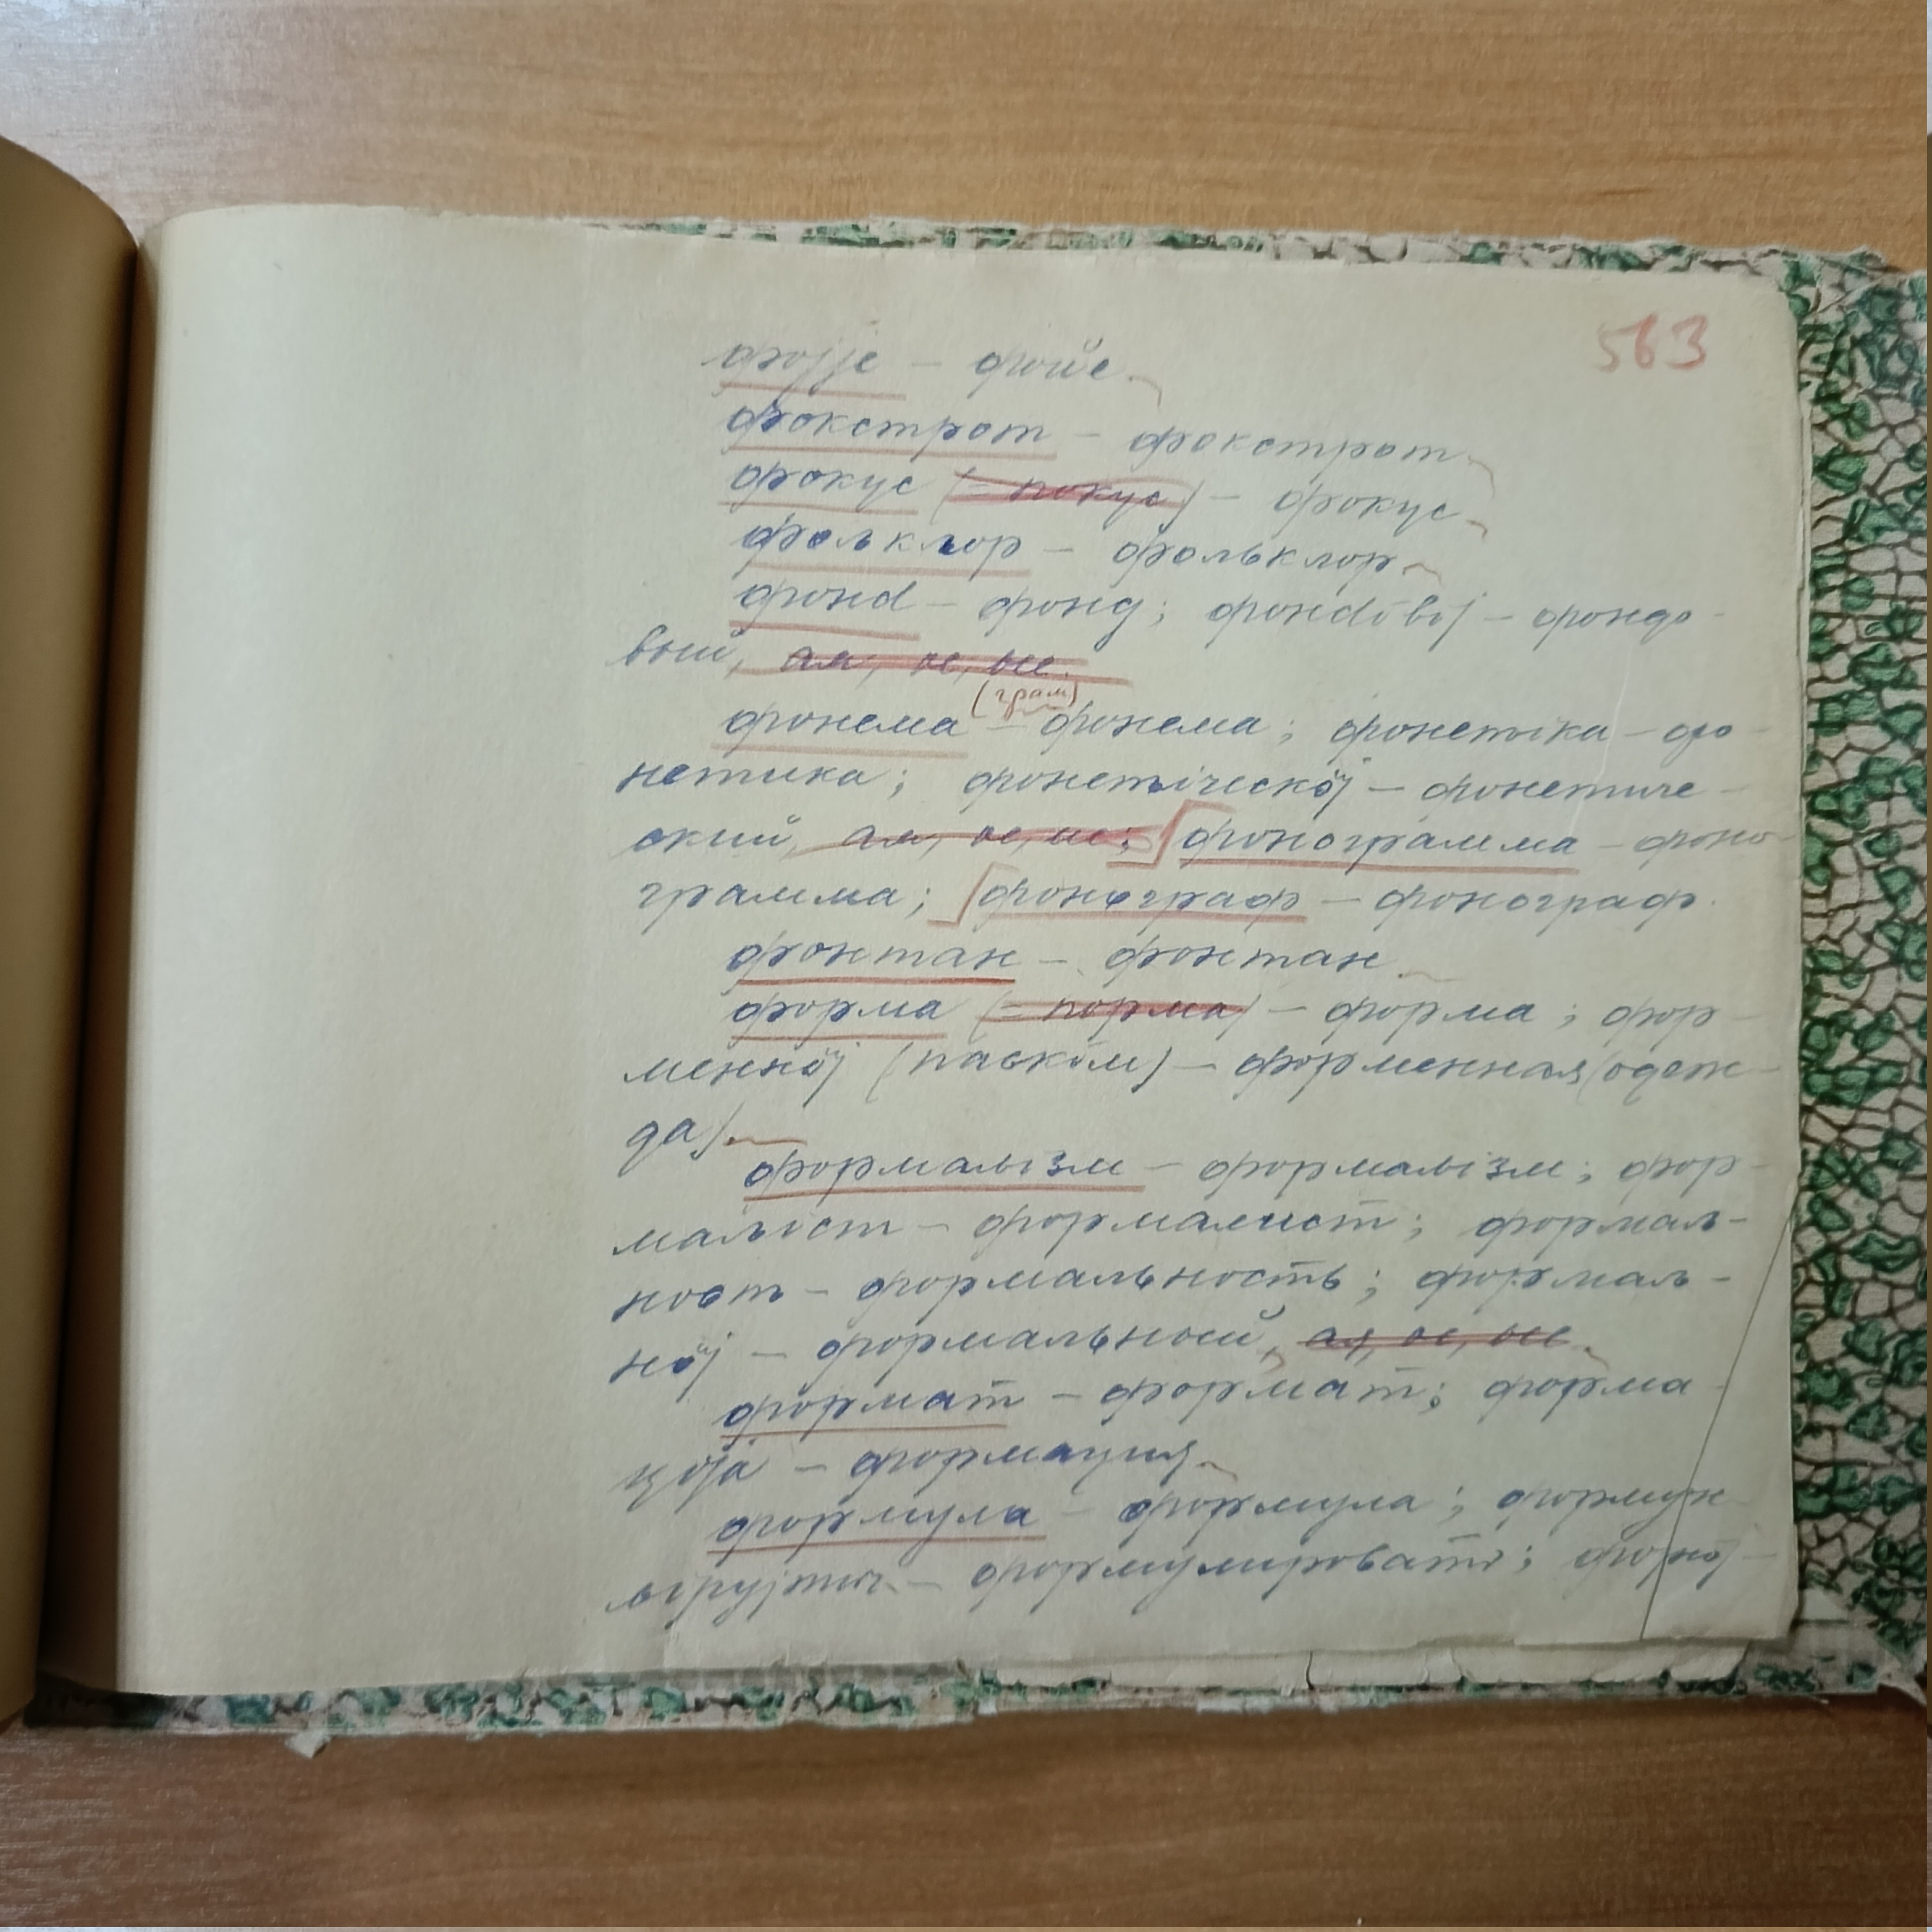 563
фојје – фойе.
фокстрот – фокстрот.
фокус (= покус) – фокус.
фольклор – фольклор.
фонd – фонд; фонdōвӧј – фондо-
вый, ая, ое, ые.
(грам)
фонема – фонема; фонетіка – фо-
нетика; фонетіческӧј – фонетиче-
ский, ая, ое, ие; фонограмма – фоно-
грамма; фонограф – фонограф.
фонтан – фонтан.
форма (= порма) – форма; фор-
меннӧј (паськӧм) – форменная (одеж-
да).
формалізм – формалізм; фор-
маліст – формалист; формал-
ность – формальность; формаль-
нӧј – формальной, ая, ое, ые.
формат – формат; форма-
ція – формация.
формула – формула; формул-
– формулировать;